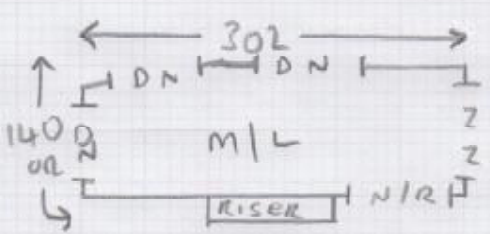 302
DN DN
140 DN M/L Z
OR Z
RISER N/R